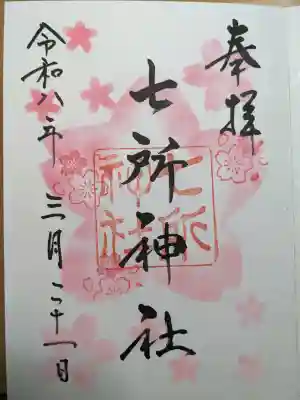 奉拝
七所神社
七所
神社
令和八年
三月二十一日